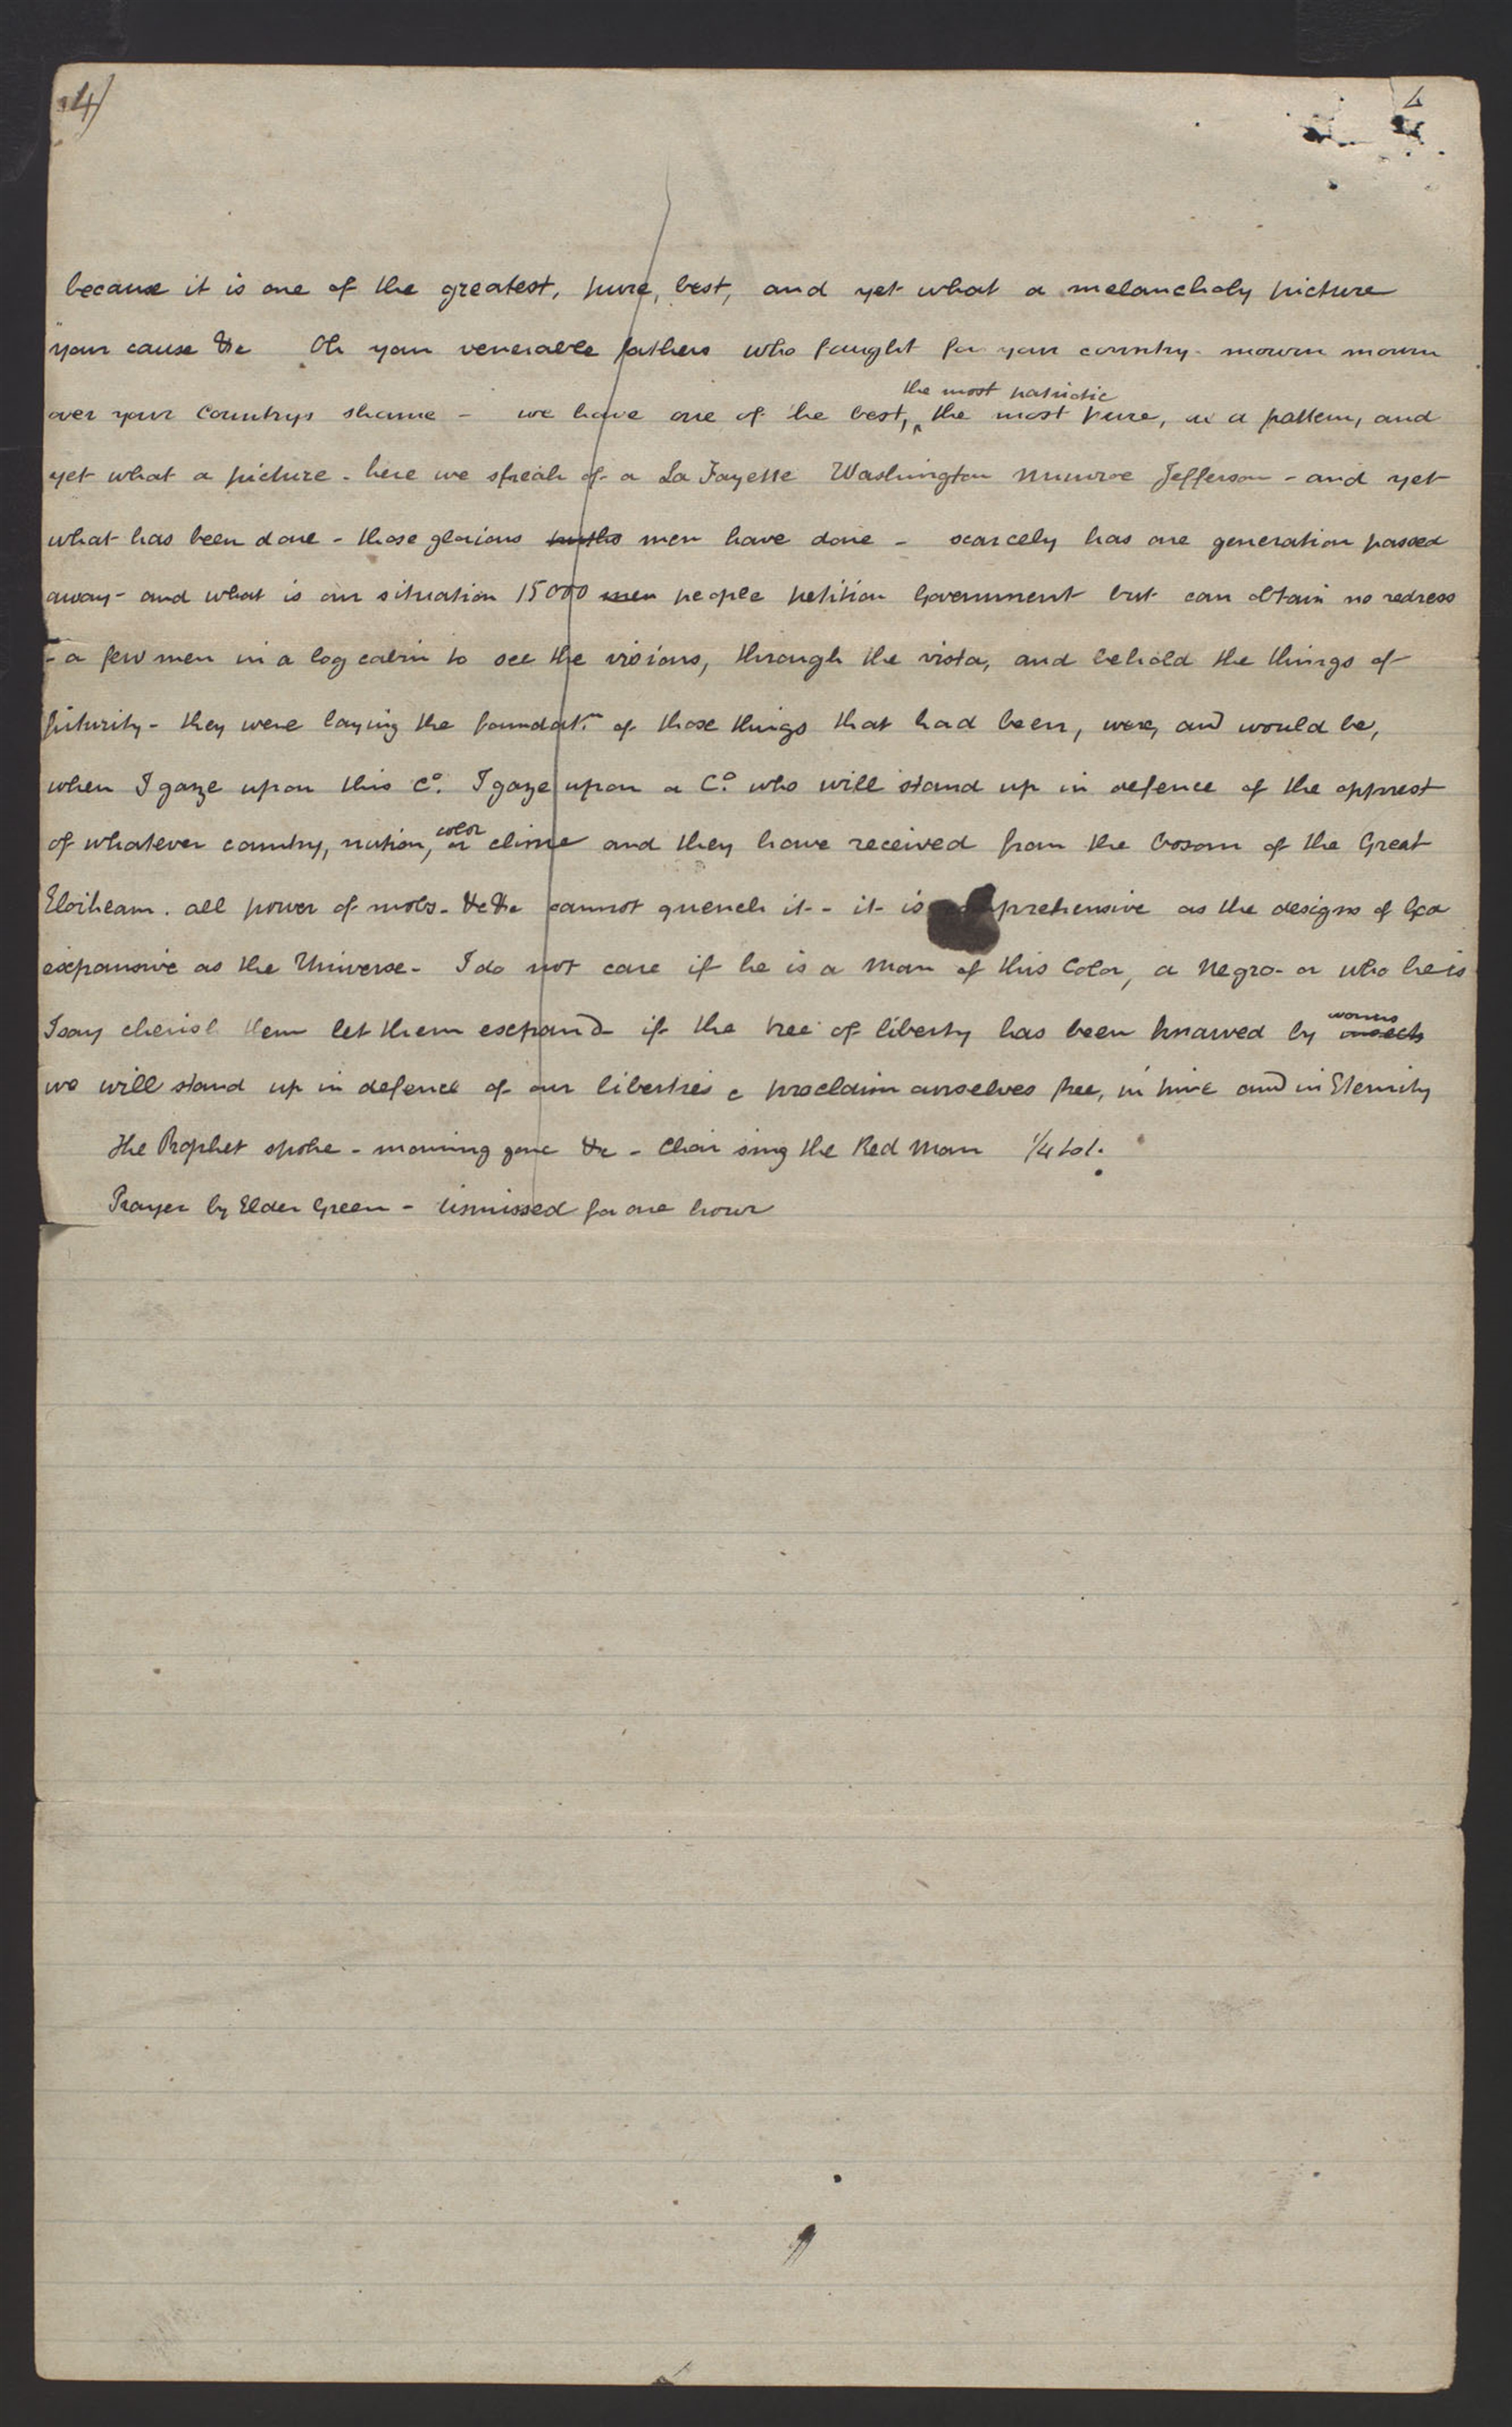 4)
because it is one of the greatest, pure, best, and yet what a melancholy picture
your cause &c Oh you venerable fathers who fought for your country - mourn mourn
the most patriotic
over your Countrys shame - we have one of he best, ^ the most pure, as a pattern, and
yet what a picture - here we speak of a La Fayette Washington Munroe Jefferson - and yet
what has been done - those glorious men have done - scarcely has one generation passed
away - and what is our situation 15000 men people petition Government but can obtain no redress
- a few men in a log cabin to see the visions, through the vista, and behold the things of
futurity - they were laying the foundatn. of those things that had been, were, and would be,
when I gaze upon this Co. I gaze upon a Co. who will stand up in defence of the opprest
color
of whatever country, nation, or clime and they have received from the bosom of the Great
Eloiheam. all power of mobs - &c &c cannot quench it - it is prehensive as the designs of God
expansive as the Universe - I do not care if he is a Man of this Color, a Negro - or who he is
worms
I say cherish them let them expand if the tree of liberty has been knawed by insects
we will stand up in defence of our liberties & proclaim ourselves free, in time and in Eternity
The Prophet spoke - morning gone &c - Choir sing the Red Man 1/4 to 1.
Prayer by Elder Green - dismissed for one hour